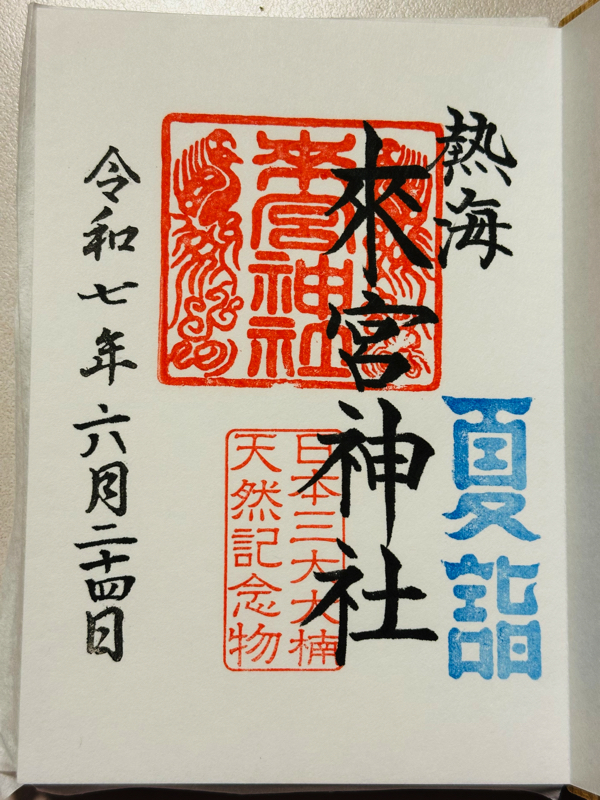 熱海
夏詣
來宮神社
來宮神社
日本三大大楠
天然記念物
令和七年六月二十四日